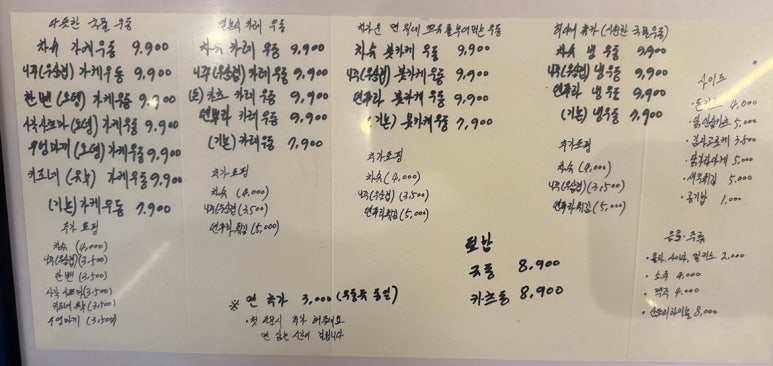 따뜻한 국물 우동
차슈 가케우동 9,900
니꾸(우삼겹) 가케우동 9,900
한뻰 (오뎅) 가케우동 9,900
사각사츠마 (오뎅) 가케우동 9,900
우엉마끼 (오뎅) 가케우동 9,900
키즈네 (유부) 가케우동 9,900
(기본) 가케우동 7,900
추가토핑
차슈 (4,000)
니꾸(우삼겹) (3,500)
한뻰 (3,500)
(3,500)
키즈네 유부 (3,500)
우엉마끼 (3,500)
일본식 카레 우동
차슈 카레 우동 9,900
니꾸(우삼겹) 카레 우동 9,900
(돈) 카츠 카레 우동 9,900
덴뿌라 카레 우동 9,900
(기본) 카레우동 7,900
추가토핑
차슈 (4,000)
니꾸(우삼겹) (3,500)
덴뿌라튀김 (5,000)
차가운 면 위에 쯔유를 부어먹는 우동
차슈 붓카케 우동 9,900
니꾸(우삼겹) 붓카케 우동 9,900
덴뿌라 붓카케 우동 9,900
(기본) 붓카케 우동 7,900
추가토핑
차슈 (4,000)
니꾸(우삼겹) (3,500)
덴뿌라튀김 (5,000)
(시원한 국물우동)
차슈 냉 우동 9,900
니꾸(우삼겹) 냉우동 9,900
덴뿌라 냉 우동 9,900
(기본) 냉우동 7,900
추가토핑
차슈 (4,000)
니꾸(우삼겹) (3,500)
덴뿌라튀김 (5,000)
사이드
· 돈카츠 4,000
· 닭안심카츠 5,000
· 감자고로케 3,500
· 닭가라아게 5,000
· 새우튀김 5,000
· 공기밥 1,000
음료·주류
· 콜라, 사이다, 밀키스 2,000
· 소주 4,000
· 맥주 4,000
· 산토리하이볼 8,000
덮밥
규동 8,900
카츠동 8,900
※ 면 추가 3,000 (우동국 동일)
· 첫 주문시 추가 해주세요
면 삶는 시간이 걸립니다